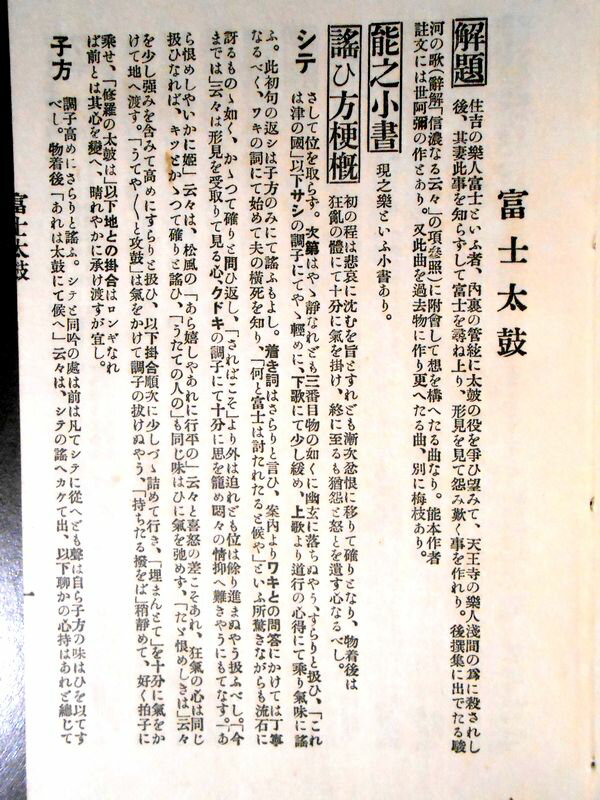 富士太鼓
解題
住吉の樂人富士といふ者、內裏の管絃に太鼓の役を爭ひ望みて、天王寺の樂人淺間の爲に殺されし
後、其妻此事を知らずして富士を尋ね上り、形見を見て怨み歎く事を作れり。後撰集に出でたる駿
河の歌(辭解「信濃なる云々」の項參照)に附會して想を構へたる曲なり。能本作者
註文には世阿彌の作とあり。又此曲を過去物に作り更へたる曲、別に梅枝あり。
能之小書
現之樂といふ小書あり。
謠ひ方梗槪
初の程は悲哀に沈むを旨とすれども漸次忿恨に移りて確りとなり、物着後は
狂亂の體にて十分に氣を掛け、終に至るも猶怨と怒とを遺す心なるべし。
シテ
さして位を取らず。次第はやゝ靜なれども三番目物の如くに幽玄に落ちぬやう、すらりと扱ひ、「これ
は津の國」以下サシの調子にてやゝ輕めに、下歌にて少し緩め、上歌より道行の心得にて乘り氣味に謠
ふ。此初句の返シは子方のみにて謠ふもよし。着き詞はさらりと言ひ、案內よりワキとの問答にかけては丁寧
なるべく、ワキの詞にて始めて夫の橫死を知り、「何と富士は討たれたると候や」といふ所驚きながらも流石に
訝るものゝ如く、かゝつて確りと問ひ返し、「さればこそ」より外は迫れども位は餘り進まぬやう扱ふべし。「今
までは」云々は形見を受取りて見る心、クドキの調子にて十分に思を籠め悶々の情抑へ難きやうにもてなす。「あ
ら恨めしやいかに姬」云々は、松風の「あら嬉しやあれに行平の」云々と喜怒の差こそあれ、狂氣の心は同じ
扱ひなれば、キッとかゝつて確りと謠ひ、「うたての人の」も同じ味はひに氣を弛めず、「たゞ恨めしきは」云々
を少し强みを含みて高めにすらりと扱ひ、以下掛合順次に少しづゝ詰めて行き、「埋まんとて」を十分に氣をか
けて地へ渡す。「うてや〱と攻鼓」は氣をかけて調子の拔けぬやう、「持ちたる撥をば」稍靜めて、好く拍子に
乘せ、「修羅の太鼓は」以下地との掛合はロンギなれ
ば前とは其心を變へ、晴れやかに承け渡すが宜し。
子方
調子高めにさらりと謠ふ。シテと同吟の處は前は凡てシテに從へども聲は自ら子方の味はひを以てす
べし。物着後「あれは太鼓にて候へ」云々は、シテの謠へカケて出、以下聊かの心持はあれど總じて
富士太鼓
一